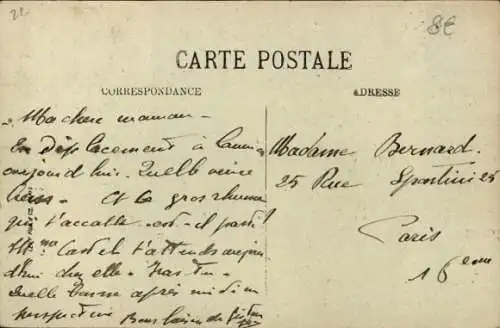 22
8€
CARTE POSTALE
CORRESPONDANCE
ADRESSE
Ma chère maman -
En déplacement à
aujourd'hui. Quelle veine
Et le gros rhume
qui t'accable est-il passé?
Mme Castel t'attends aujour
d'hui chez elle - Iras-tu -
Quelle bonne après midi en
perspective Bons baisers de
Madame Bernard.
25 Rue Spontini 25
Paris
16eme